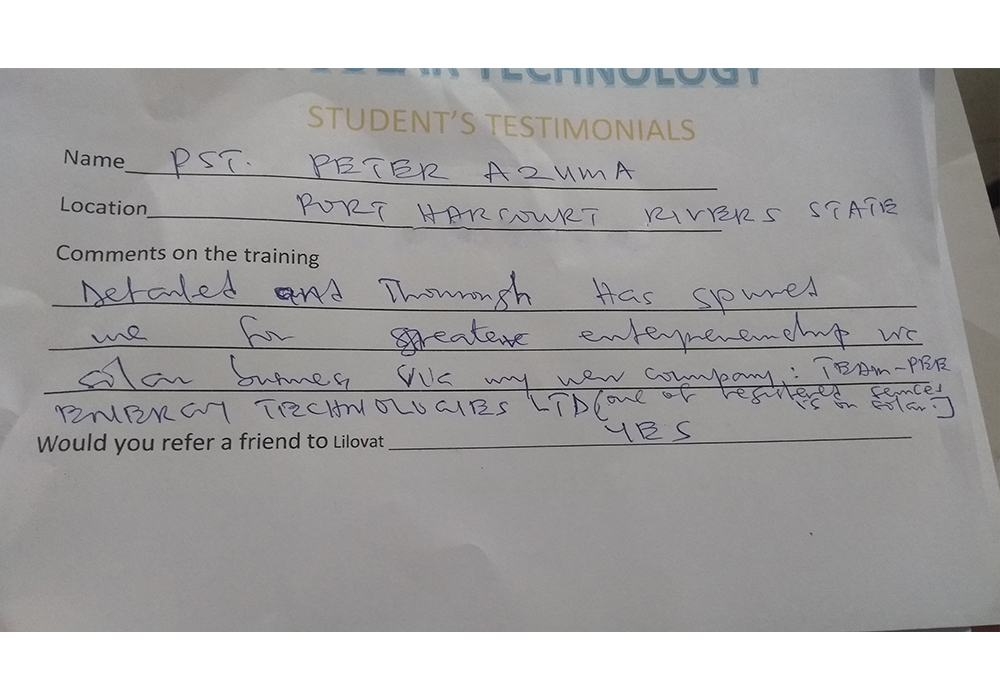 SOLAR TECHNOLOGY
STUDENT'S TESTIMONIALS
Name PST. PETER AZUMA
Location PORT HARCOURT RIVERS STATE
Comments on the training
Detailed and Thorough Has spured
me for greater enterpreneurship
solar business my new company: TEAM-PEE
ENERGY TECHNOLOGIES LTD (one of registered services
is on solar.]
Would you refer a friend to Lilovat YES